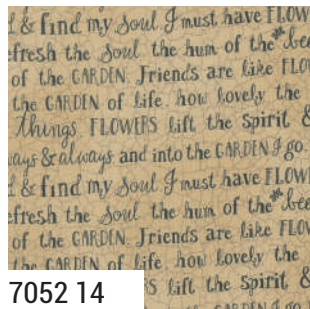 & find my Soul I must have FLOW
efresh the Soul the hum of the bee
of the GARDEN. Friends are like FLO
the GARDEN of life. how lovely the
things. FLOWERS lift the spirit &
ways & always. and into the GARDEN I go.
& find my Soul I must have FLOW
efresh the Soul the hum of the bee
of the GARDEN. Friends are like FLO
the GARDEN of life. how lovely the
S lift the spirit &
GARDEN I go
7052 14